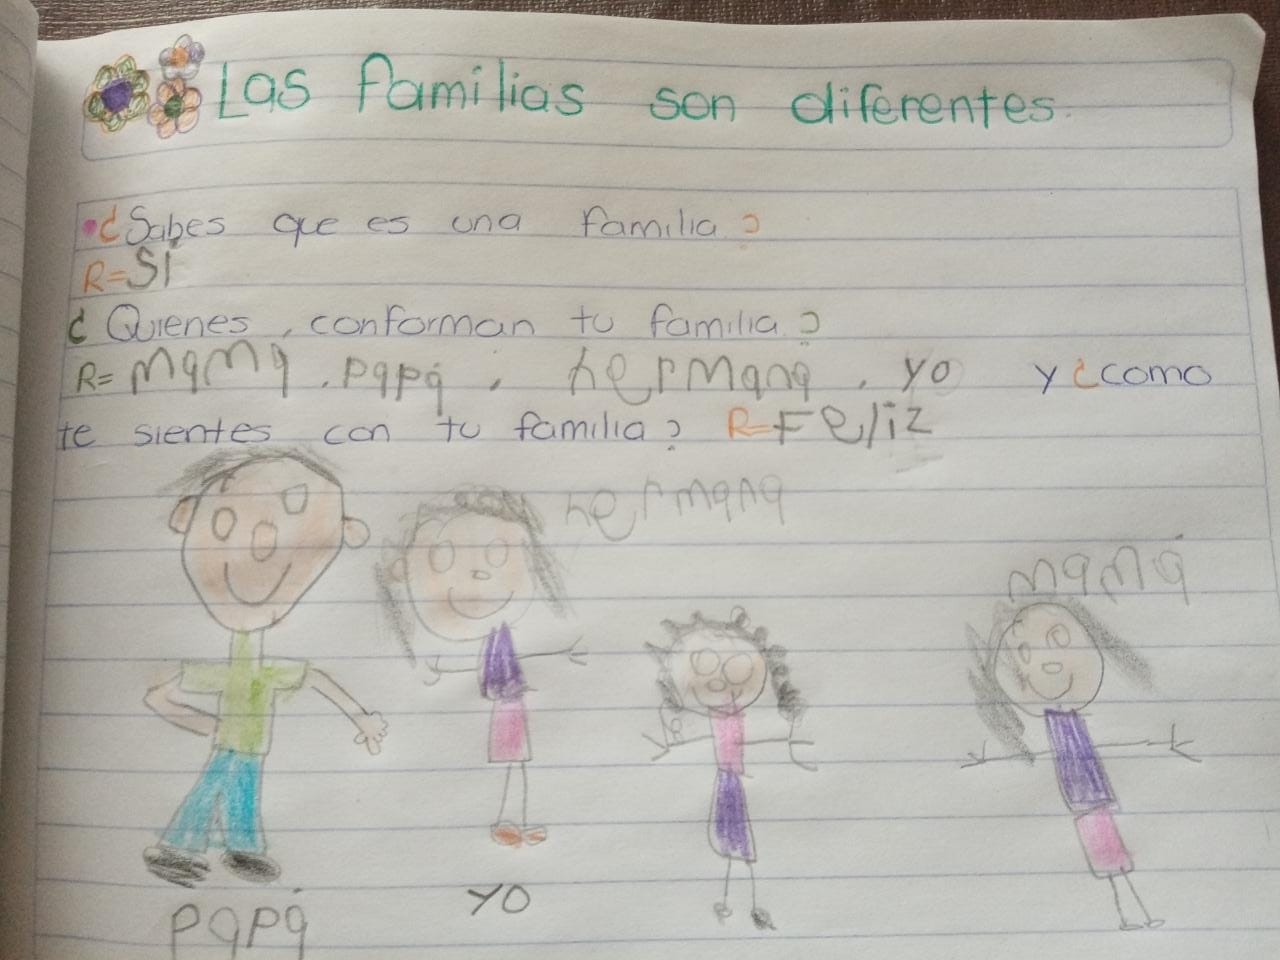 Las familias son diferentes.
¿Sabes que es una familia?
R=Sí
¿Quienes, conforman tu familia?
R= mamá, papá, hermana, yo y ¿como
te sientes con tu familia? R=Feliz
hermana
mamá
yo
papá